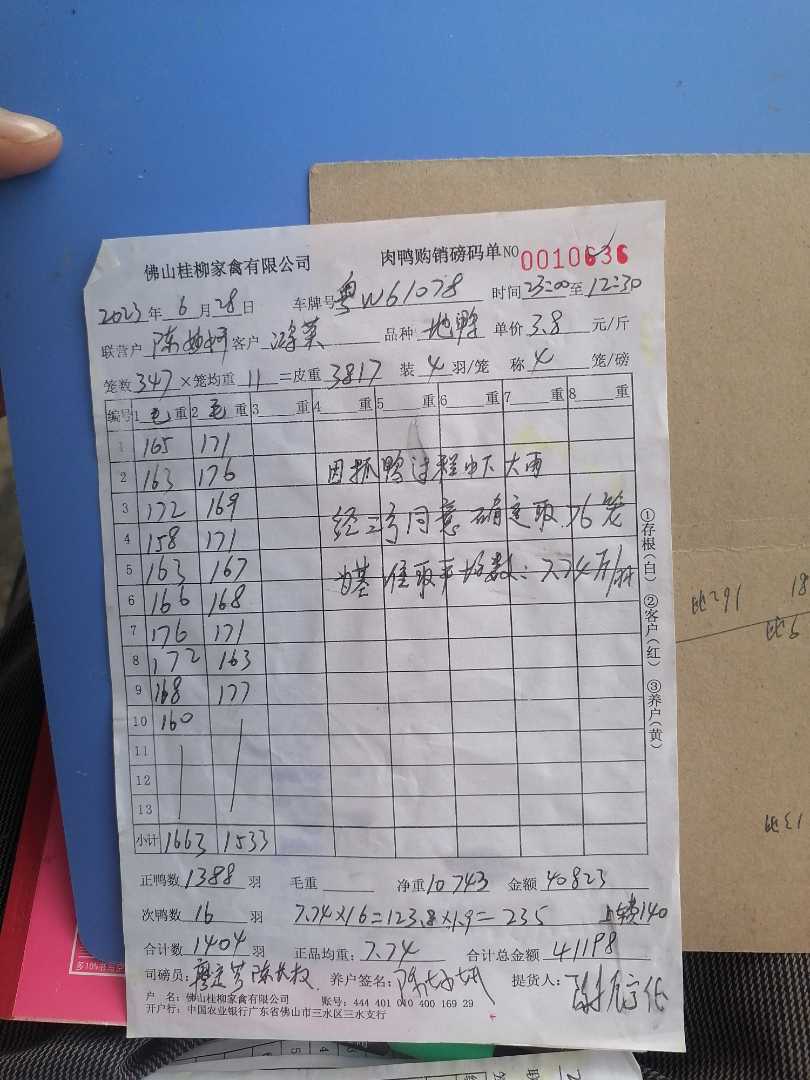 佛山桂柳家禽有限公司 肉鸭购销磅码单 NO 0010636
2023年6月28日 车牌号 粤W61078 时间 23:00 至 12:30
联营户 陈 客户 品种 地鸭 单价 3.8 元/斤
笼数 347 ×笼均重 11 =皮重 3817 装 4 羽/笼 称 4 笼/磅
编号 1 毛 重 2 毛 重 3 重 4 重 5 重 6 重 7 重 8 重
1 165 171
2 163 176 因抓鸭过程中下大雨
3 172 169 经三方同意确定取 76笼
4 158 171
5 163 167 为基 取平均数:7.74斤/羽
6 166 168
7 176 171
8 172 163
9 168 177
10 160
11
12
13
小计 1663 1533
①存根(白) ②客户(红) ③养户(黄)
正鸭数 1388 羽 毛重 净重 10743 金额 40823
次鸭数 16 羽 7.74×16=123.8×1.9=235 上 140
合计数 1404 羽 正品均重: 7.74 合计总金额 41198
司磅员: 养户签名: 陈 提货人:
户 名: 佛山桂柳家禽有限公司 账号: 444 401 010 400 169 29
开户行: 中国农业银行广东省佛山市三水区三水支行